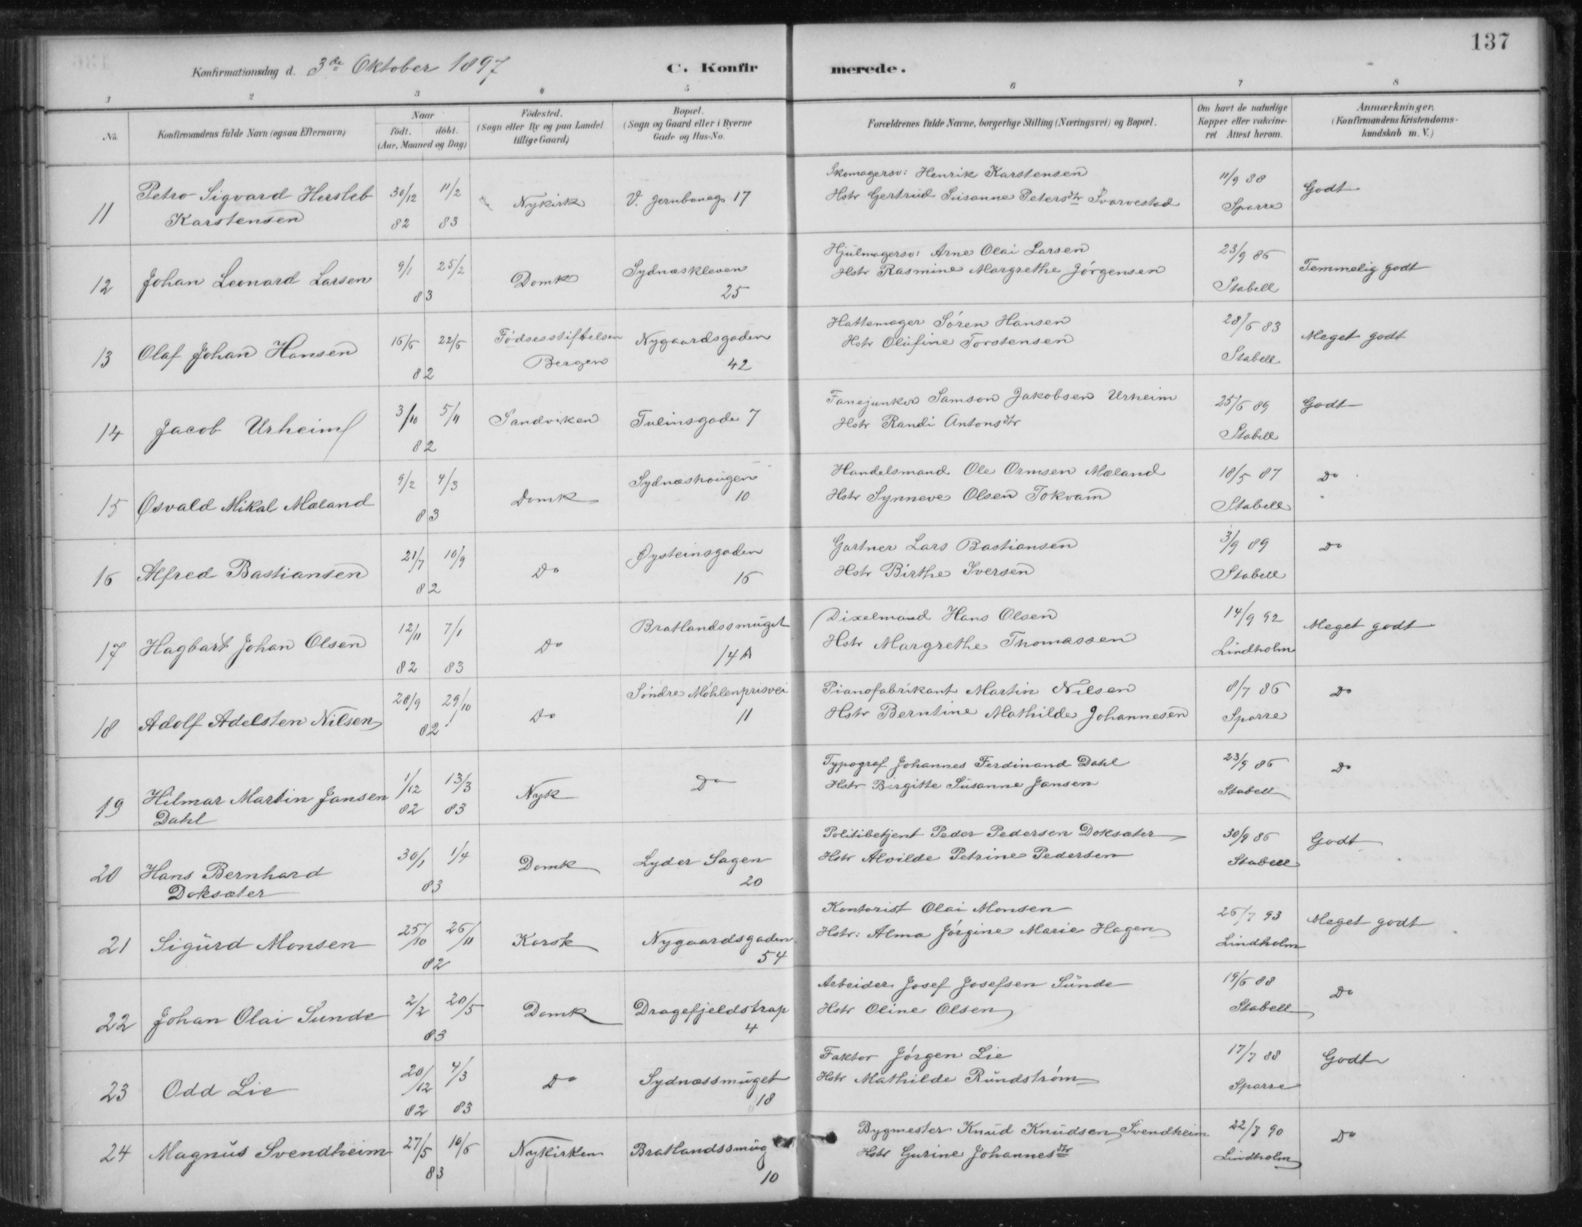 137
Konfirmationsdag d. 3de Oktober 1897 C. Konfirmerede.
1 2 3 4 5 6 7 8
No. Konfirmandens fulde Navn (ogsaa Efternavn) Naar født. døbt. (Aar, Maaned og Dag) Fødested. (Sogn eller By og paa Landet tillige Gaard) Bopæl. (Sogn og Gaard eller i Byerne Gade og Hus-No. Forældrenes fulde Navne, borgerlige Stilling (Næringsvei) og Bopæl. Om havt de naturlige Kopper eller vakcineret Attest herom. Anmærkninger. (Konfirmandens Kristendomskundskab m. V.)
11 Petro Sigvard Hersleb Karstensen 30/12 82 11/2 83 Nykirk V. Jernbaneg 17 Skomagersv: Henrik Karstensen Hstr Gertrud Susanne Petersdtr Svarvestad 11/9 88 Sparre Godt
12 Johan Leonard Larsen 9/1 25/2 83 Domk Sydnæskleven 25 Hjulmagersv: Arne Olai Larsen Hstr Rasmine Margrethe Jörgensen 23/9 86 Stabell Temmelig godt
13 Olaf Johan Hansen 16/5 22/5 82 Födselsstiftelsen Bergen Nygaardsgaden 42 Hattemager Sören Hansen Hstr Olufine Torstensen 28/6 83 Stabell Meget godt
14 Jacob Urheim 3/10 5/11 82 Sandviken Tulinsgade 7 Fanejunker Samson Jakobsen Urheim Hstr Randi Antonsdtr 25/6 89 Stabell Godt
15 Osvald Mikal Mæland 9/2 4/3 83 Domk Sydnæshaugen 10 Handelsmand Ole Ormsen Mæland Hstr Synneve Olsen Tokvam 18/5 87 Stabell Do
16 Alfred Bastiansen 21/7 10/9 82 Do Øysteinsgaden 16 Gartner Lars Bastiansen Hstr Birthe Iversen 3/9 89 Stabell Do
17 Hagbart Johan Olsen 12/11 82 7/1 83 Do Bratlandssmuget 14 A Dixelmand Hans Olsen Hstr Margrethe Thomassen 14/9 92 Lindholm Meget godt
18 Adolf Adelsten Nilsen 20/9 29/10 82 Do Söndre Möhlenprisvei 11 Pianofabrikant Martin Nilsen Hstr Berntine Mathilde Johannesen 8/7 86 Sparre Do
19 Hilmar Martin Jansen Dahl 1/12 82 13/3 83 Nyk Do Typograf Johannes Ferdinand Dahl Hstr Birgitte Susanne Jansen 23/9 86 Stabell Do
20 Hans Bernhard Doksæter 30/1 1/4 83 Domk Lyder Sagen 20 Politibetjent Peder Pedersen Doksæter Hstr Alvilde Petrine Pedersen 30/9 86 Stabell Godt
21 Sigurd Monsen 25/10 26/11 82 Korsk Nygaardsgaden 54 Kontorist Olai Monsen Hstr: Alma Jörgine Marie Hagen 26/7 93 Lindholm Meget godt
22 Johan Olai Sunde 2/2 20/5 83 Domk Dragefjeldstrap 4 Arbeider Josef Josefsen Sunde Hstr Oline Olsen 19/6 88 Stabell Do
23 Odd Lie 20/12 82 4/3 83 Do Sydnæssmuget 18 Faktor Jörgen Lie Hstr Mathilde Rundström 17/7 88 Sparre Godt
24 Magnus Svendheim 27/5 10/6 83 Nykirken Bratlandssmug 10 Bygmester Knud Knudsen Svendheim Hstr Gurine Johannesdtr 22/7 90 Lindholm Do